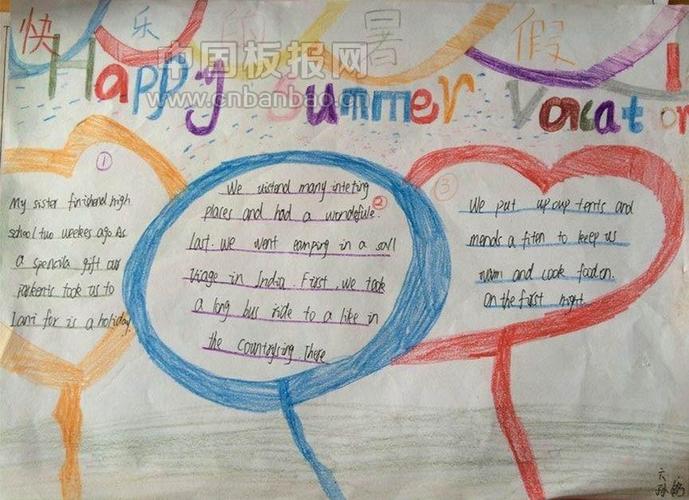 快 乐 的 暑 假
中国板报网
www.cnbanbao.cn
Happy Summer Vacation
①
My sister finishend high
school two weekes ago. As
a spencila gift our
parkents took us to
Iani for is a holiday
We uistend many inteting
②
places and had a wondefule
last. we went camping in a sall
Viage in India. First, we took
a long bus ride to a like in
the countrysing There
③
We put up oup tents and
mends a fiten to keep us
warm and cook food on.
On the first night
六